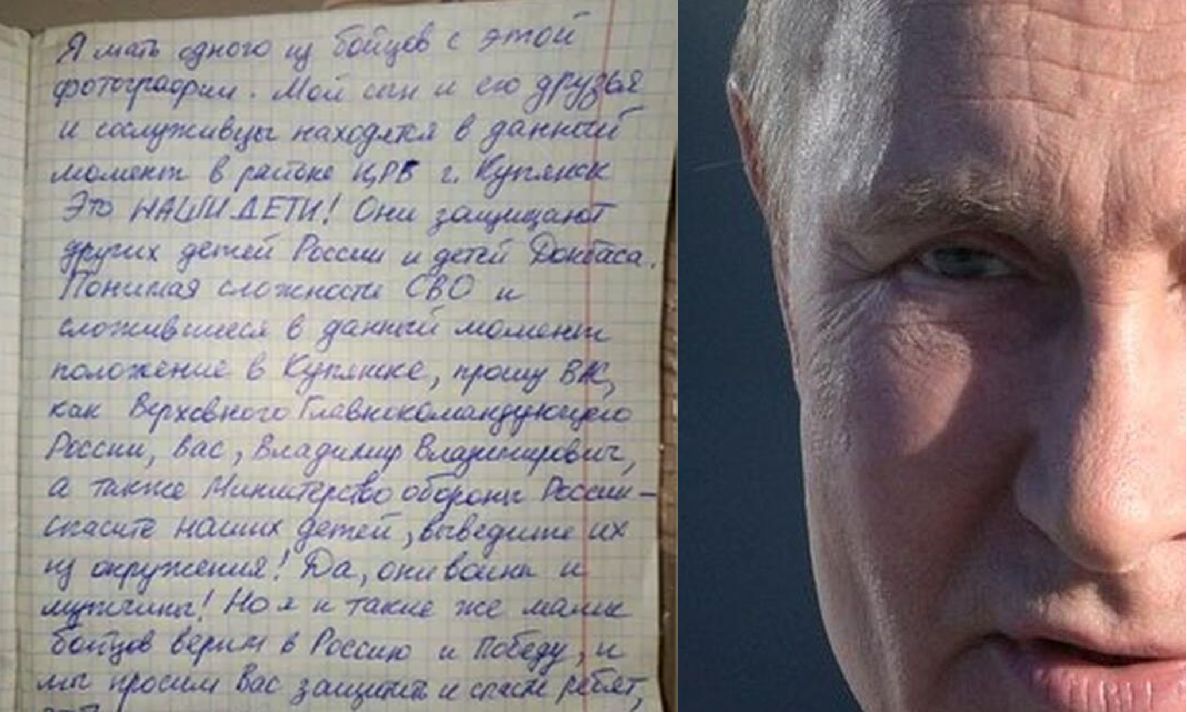 Я мать одного из бойцов с этой
фотографии. Мой сын и его друзья
и сослуживцы находятся в данный
момент в районе ЦРБ г. Купянск
Это НАШИ ДЕТИ! Они защищают
других детей России и детей Донбаса.
Понимая сложности СВО и
сложившиеся в данный момент
положение в Купянске, прошу ВАС,
как Верховного Главнокомандующего
России, Вас, Владимир Владимирович,
а также Министерство обороны России –
спасите наших детей, выведите их
из окружения! Да, они воины и
мужчины! Но я и такие же мамы
бойцов верим в Россию и Победу, и
мы просим Вас защитить и спасти ребят,